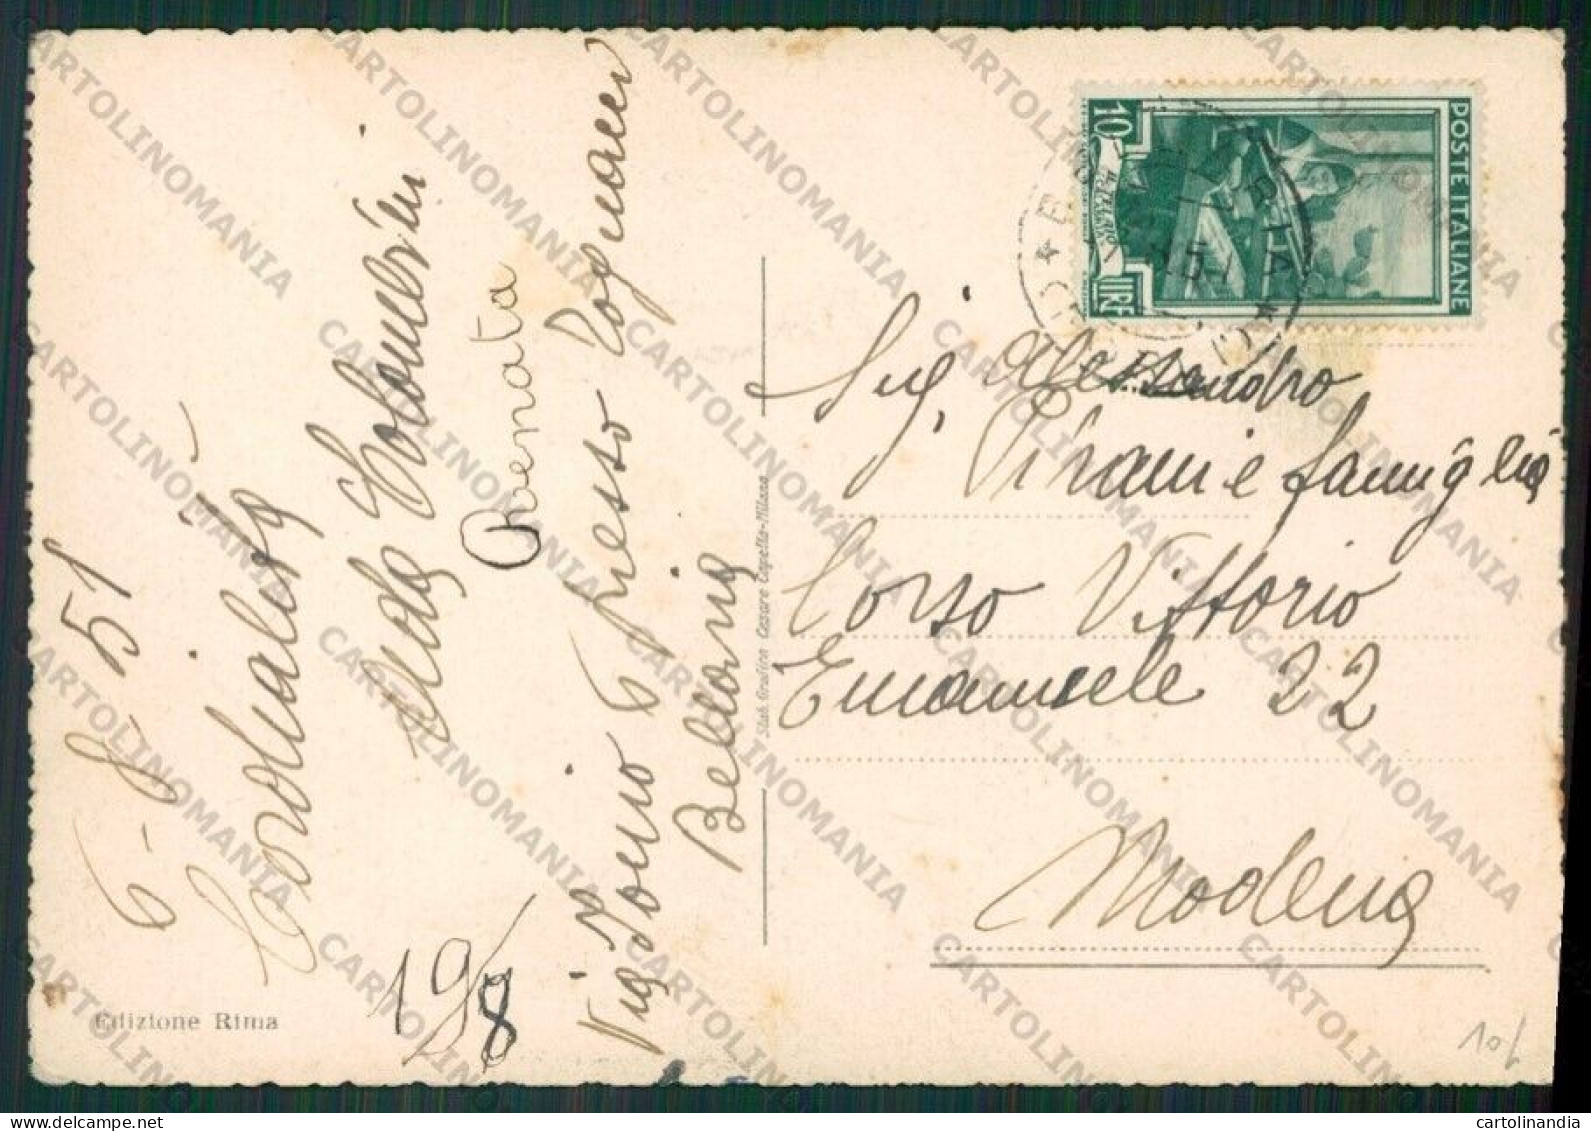 6-8-51
Cordialità
Renata
Via Torino 6 presso
Bellaria
198
Edizione Rima
Stab. Grafico Cesare Capello-Milano
POSTE ITALIANE
10
LIRE
BELLARIA
Sig. Alessandro
Pirani e famiglia
Corso Vittorio
Emanuele 22
Modena
CARTOLINOMANIA
cartolinandia